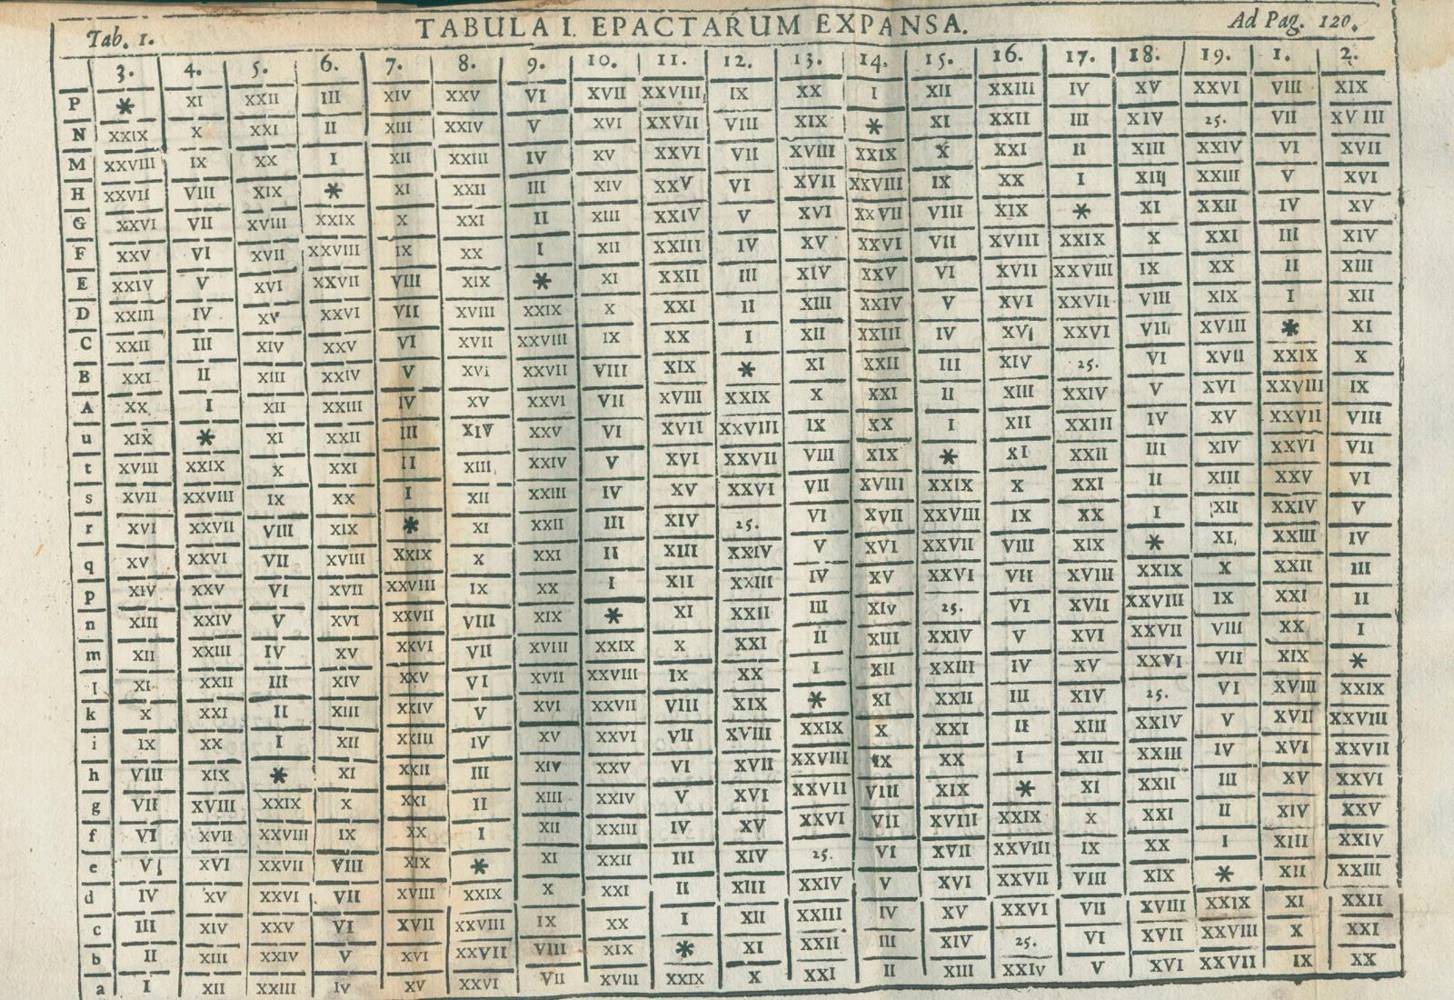 Tab. 1. TABULA I. EPACTARUM EXPANSA. Ad Pag. 120.
3. 4. 5. 6. 7. 8. 9. 10. 11. 12. 13. 14. 15. 16. 17. 18. 19. 1. 2.
P * XI XXII III XIV XXV VI XVII XXVIII IX XX I XII XXIII IV XV XXVI VIII XIX
N XXIX X XXI II XIII XXIV V XVI XXVII VIII XIX * XI XXII III XIV 25. VII XVIII
M XXVIII IX XX I XII XXIII IV XV XXVI VII XVIII XXIX X XXI II XIII XXIV VI XVII
H XXVII VIII XIX * XI XXII III XIV XXV VI XVII XXVIII IX XX I XII XXIII V XVI
G XXVI VII XVIII XXIX X XXI II XIII XXIV V XVI XXVII VIII XIX * XI XXII IV XV
F XXV VI XVII XXVIII IX XX I XII XXIII IV XV XXVI VII XVIII XXIX X XXI III XIV
E XXIV V XVI XXVII VIII XIX * XI XXII III XIV XXV VI XVII XXVIII IX XX II XIII
D XXIII IV XV XXVI VII XVIII XXIX X XXI II XIII XXIV V XVI XXVII VIII XIX I XII
C XXII III XIV XXV VI XVII XXVIII IX XX I XII XXIII IV XV XXVI VII XVIII * XI
B XXI II XIII XXIV V XVI XXVII VIII XIX * XI XXII III XIV 25. VI XVII XXIX X
A XX I XII XXIII IV XV XXVI VII XVIII XXIX X XXI II XIII XXIV V XVI XXVIII IX
u XIX * XI XXII III XIV XXV VI XVII XXVIII IX XX I XII XXIII IV XV XXVII VIII
t XVIII XXIX X XXI II XIII XXIV V XVI XXVII VIII XIX * XI XXII III XIV XXVI VII
s XVII XXVIII IX XX I XII XXIII IV XV XXVI VII XVIII XXIX X XXI II XIII XXV VI
r XVI XXVII VIII XIX * XI XXII III XIV 25. VI XVII XXVIII IX XX I XII XXIV V
q XV XXVI VII XVIII XXIX X XXI II XIII XXIV V XVI XXVII VIII XIX * XI XXIII IV
p XIV XXV VI XVII XXVIII IX XX I XII XXIII IV XV XXVI VII XVIII XXIX X XXII III
n XIII XXIV V XVI XXVII VIII XIX * XI XXII III XIV 25. VI XVII XXVIII IX XXI II
m XII XXIII IV XV XXVI VII XVIII XXIX X XXI II XIII XXIV V XVI XXVII VIII XX I
l XI XXII III XIV XXV VI XVII XXVIII IX XX I XII XXIII IV XV XXVI VII XIX *
k X XXI II XIII XXIV V XVI XXVII VIII XIX * XI XXII III XIV 25. VI XVIII XXIX
i IX XX I XII XXIII IV XV XXVI VII XVIII XXIX X XXI II XIII XXIV V XVII XXVIII
h VIII XIX * XI XXII III XIV XXV VI XVII XXVIII IX XX I XII XXIII IV XVI XXVII
g VII XVIII XXIX X XXI II XIII XXIV V XVI XXVII VIII XIX * XI XXII III XV XXVI
f VI XVII XXVIII IX XX I XII XXIII IV XV XXVI VII XVIII XXIX X XXI II XIV XXV
e V XVI XXVII VIII XIX * XI XXII III XIV 25. VI XVII XXVIII IX XX I XIII XXIV
d IV XV XXVI VII XVIII XXIX X XXI II XIII XXIV V XVI XXVII VIII XIX * XII XXIII
c III XIV XXV VI XVII XXVIII IX XX I XII XXIII IV XV XXVI VII XVIII XXIX XI XXII
b II XIII XXIV V XVI XXVII VIII XIX * XI XXII III XIV 25. VI XVII XXVIII X XXI
a I XII XXIII IV XV XXVI VII XVIII XXIX X XXI II XIII XXIV V XVI XXVII IX XX